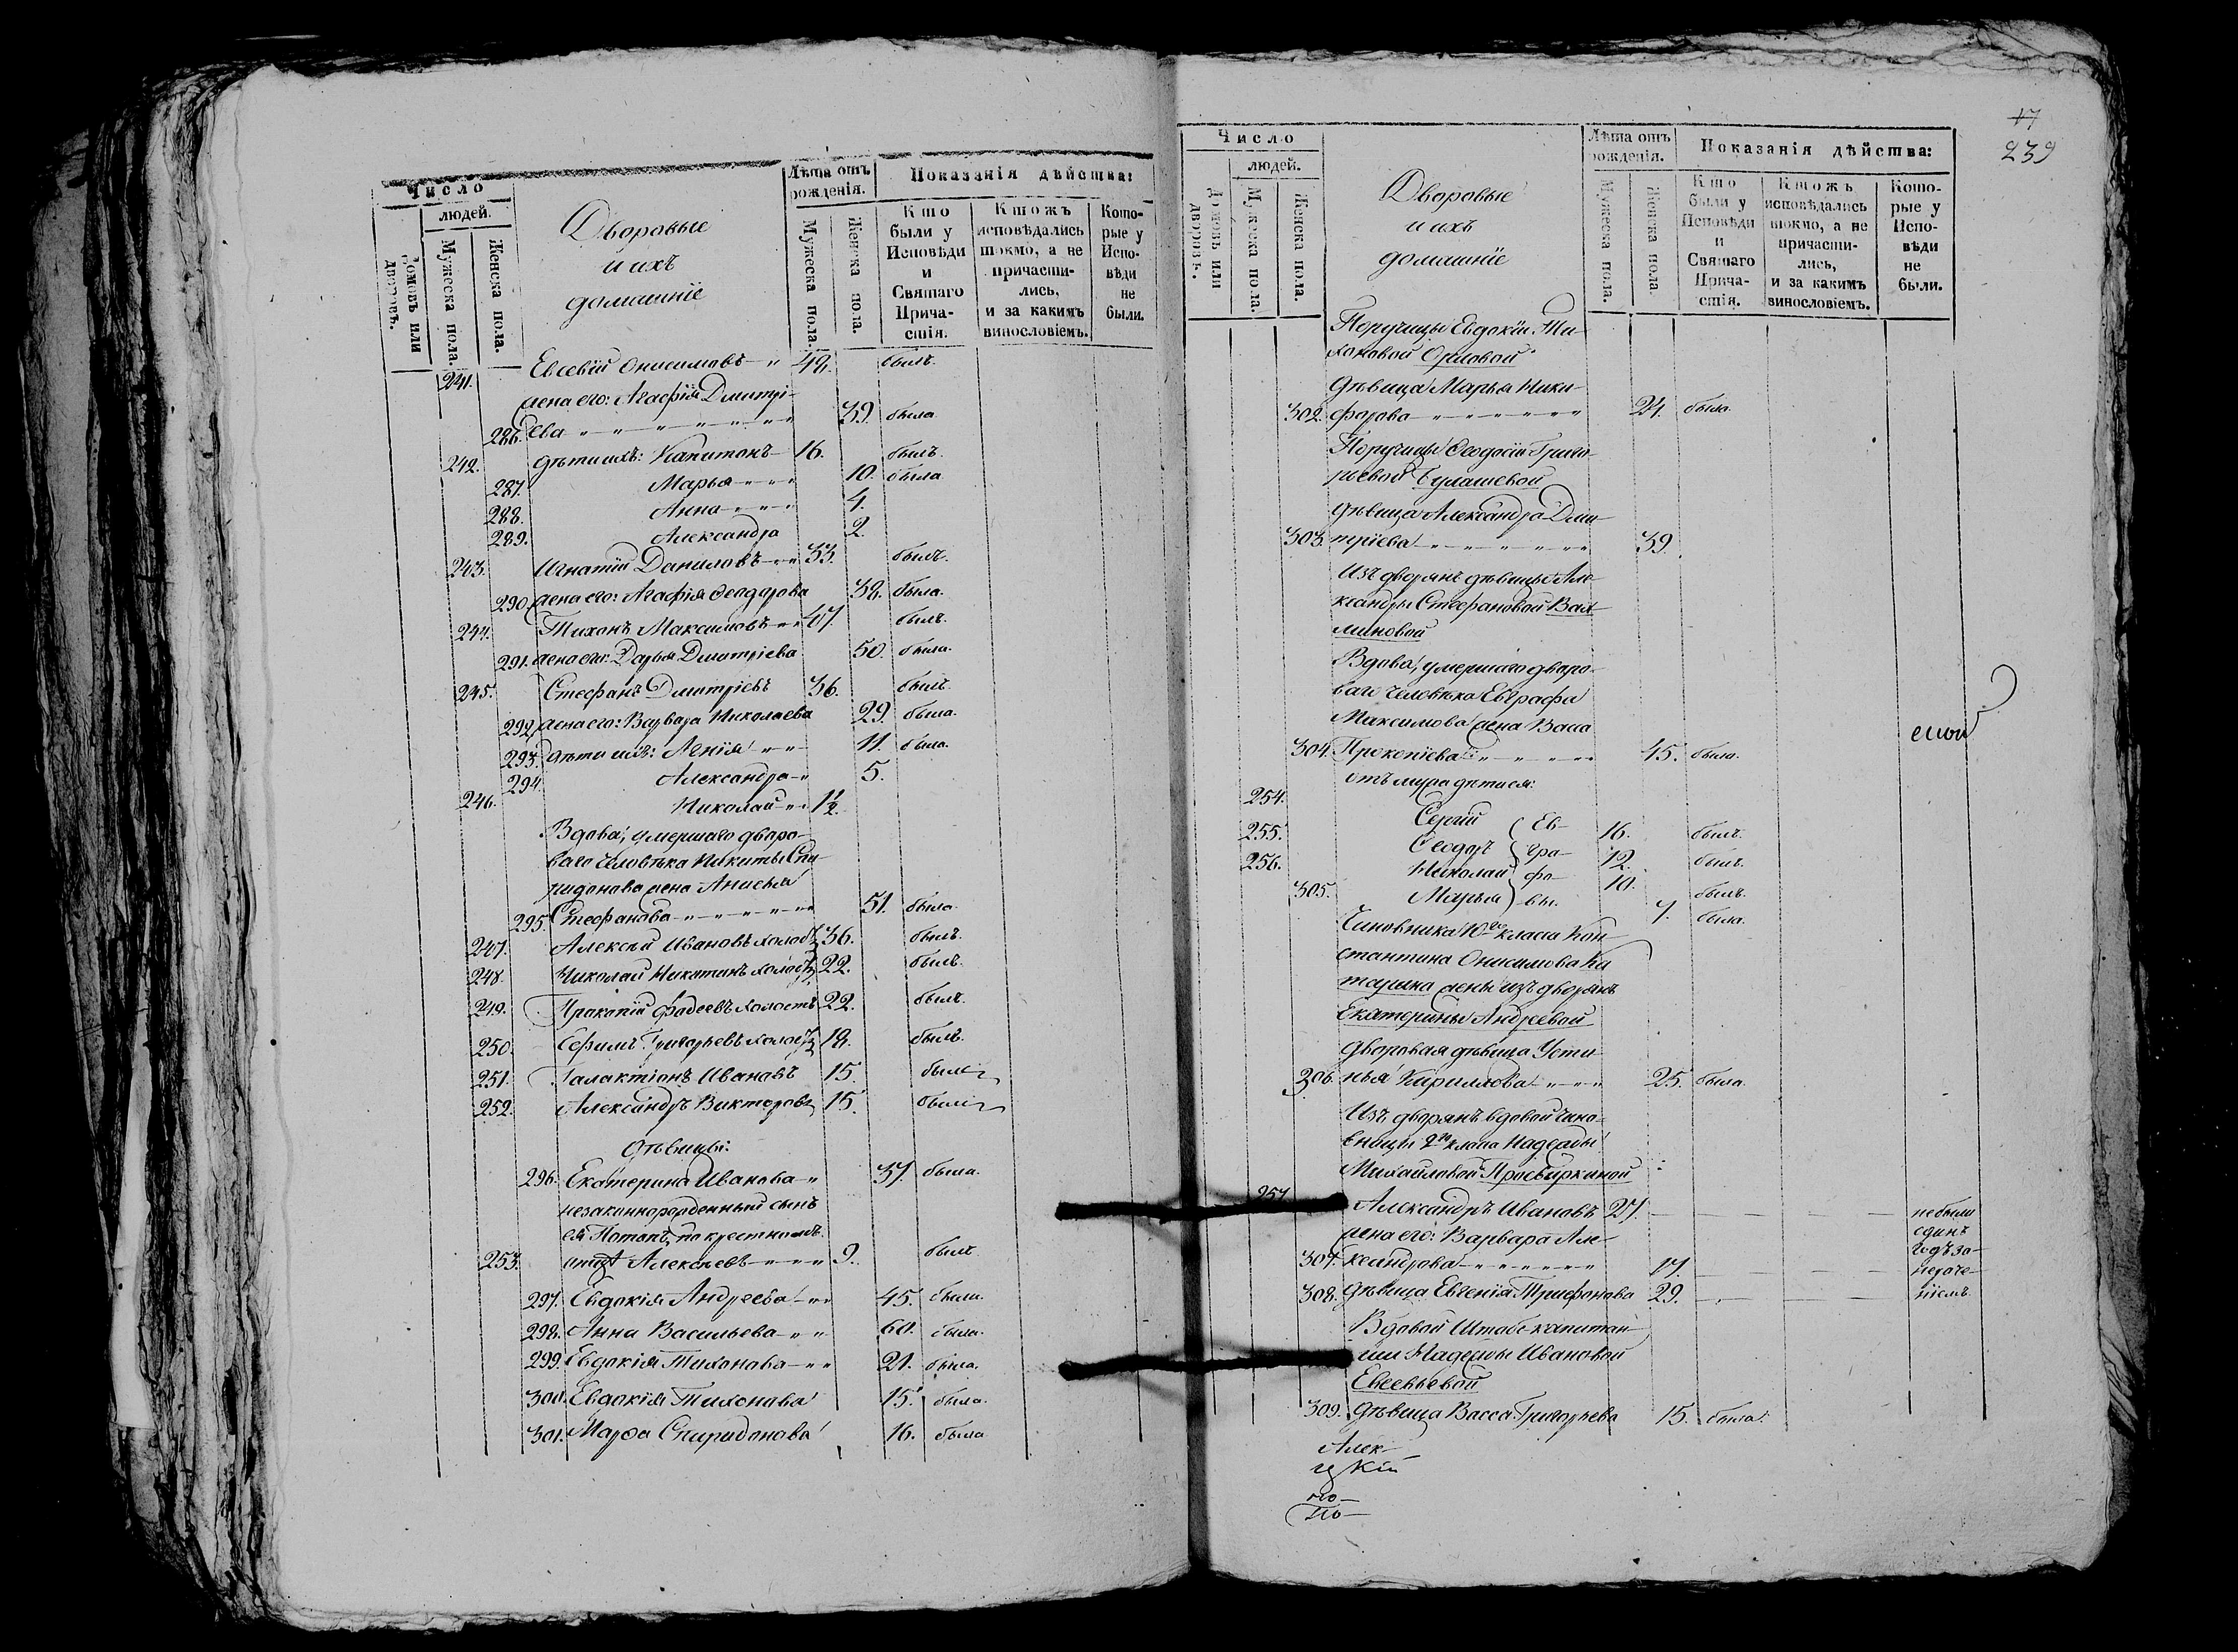 Число
людей.
Домовъ или дворовъ.
Мужеска пола.
Женска пола.
Дворовые
и ихъ
домашніе
Лѣта отъ рожденія.
Мужеска пола.
Женска пола.
Показанія дѣйства:
Кто были у Исповѣди и Святаго Прича-стія.
Ктожъ исповѣдались токмо, а не причасти-лись, и за какимъ винословіемъ.
Кото-рые у Испо-вѣди не были.
241. Евсевій Онисимовъ 48. былъ.
жена его: Агафія Дмитрі-
286. ева 39. была
242. дѣти ихъ: Капитонъ 16. былъ.
287. Марья 10. была
288. Анна 4.
289. Александра 2.
243. Игнатій Даниловъ 33. былъ.
290. жена его: Агафія Феодорова 38. была.
244. Тихонъ Максимовъ 47. былъ.
291. жена его: Дарья Дмитріева 50. была.
245. Стефанъ Дмитріевъ 36. былъ.
292. жена его: Варвара Николаева 29. была.
293. дѣти ихъ: Агнія 11. была.
294. Александра 5.
246. Николай 1½.
Вдова, умершаго дворо-
ваго человѣка Никиты Спи-
ридонова жена Анисья
295. Стефанова 51. была.
247. Алексѣй Ивановъ холостъ 36. былъ.
248. Николай Никитинъ холостъ 22. былъ.
249. Прокопій Фадеевъ холостъ 22. былъ.
250. Ефимъ Григорьевъ холостъ 18. былъ.
251. Галактіонъ Ивановъ 15. былъ
252. Александръ Викторовъ 15. былъ
Дѣвицы:
296. Екатерина Иванова 37. была.
незаконнорожденный сынъ
ея Потапъ, по крестномъ
253. отцѣ Алексѣевъ 9. былъ.
297. Евдокія Андреева 45. была.
298. Анна Васильева 60. была.
299. Евдокія Тихонова 21. была.
300. Евдокія Тихонова 15. была.
301. Марѳа Спиридонова 16. была
17
239
Число
людей.
Домовъ или дворовъ.
Мужеска пола.
Женска пола.
Дворовые
и ихъ
домашніе
Лѣта отъ рожденія.
Мужеска пола.
Женска пола.
Показанія дѣйства:
Кто были у Исповѣди и Святаго Прича-стія.
Ктожъ исповѣдались токмо, а не причасти-лись, и за какимъ винословіемъ.
Кото-рые у Испо-вѣди не были.
Поручицы Евдокіи Ти-
хоновой Орловой
дѣвица Марья Ники-
302. форова 24. была.
Поручицы Феодосіи Григо-
рьевой
дѣвица Александра Дми-
303. тріева 39.
Изъ дворянъ дѣвицы Але-
ксандры Стефановой Вах-
миновой
Вдова, умершаго дворо-
ваго человѣка Евграфа
Максимова жена Васса
304. Прокопіева 45. была.
дѣти ея:
254. Сергій Ев- 16. былъ.
255. Феодоръ гра- 12. былъ.
256. Николай фо- 10. былъ.
305. Марья вы. 7. была.
Чиновника 10го класса Кон-
стантина Онисимова
жены изъ дворянъ
Екатерины Андреевой
дворовая дѣвица Усти-
306. нья Кириллова 25. была.
Изъ дворянъ вдовой чино-
вницы класса Надежды
Михайловой Просвиркиной
257. Александръ Ивановъ 27. небыли
жена его: Варвара Але- одинъ
307. ксандрова 17. годъ за
308. дѣвица Евгенія Трифонова 29. нераче-ніемъ
Вдовой Штабс-капитан-
ши Надежды Ивановой
Евсевьевой
309. дѣвица Васса Григорьева 15. была.
Алек-